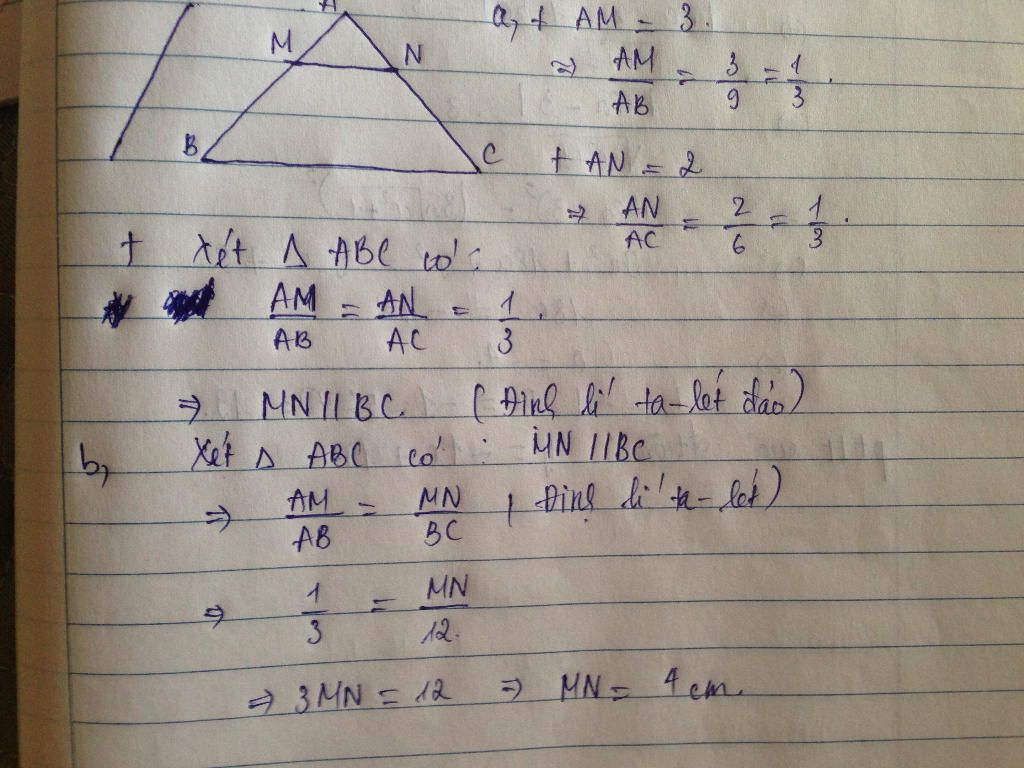 A
M N
B C
a, + AM = 3.
⇒ AM/AB = 3/9 = 1/3.
+ AN = 2
⇒ AN/AC = 2/6 = 1/3.
+ Xét Δ ABC có:
AM/AB = AN/AC = 1/3.
⇒ MN // BC. (Định lí ta-lét đảo)
b, Xét Δ ABC có: MN // BC
⇒ AM/AB = MN/BC (Định lí ta-lét)
⇒ 1/3 = MN/12.
⇒ 3MN = 12 ⇒ MN = 4 cm.